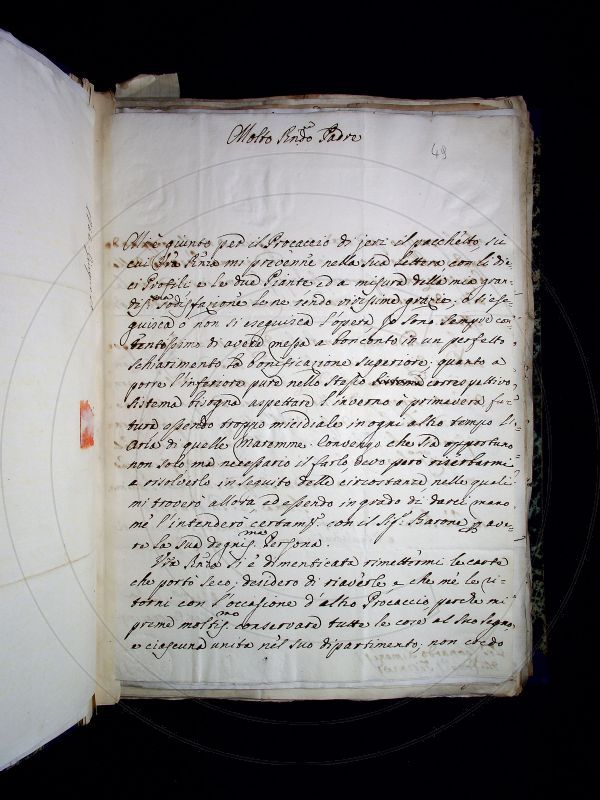 Molto Rndo Padre
49
Mi è giunto per il Procaccio di jeri il pacchetto su
cui Vra Rnza mi prevenne nella Sua lettera con li die-
ci Profili e le due Piante ed a misura della mia gran-
diss.ma Sodisfazione le ne rendo vivissime grazie; o si ese-
guisca o non si eseguisca l'opera Jo Sono Sempre con-
tentissimo di avere messa a bon conto in un perfetto
Schiarimento la bonificazione Superiore; quanto a
porre l'inferiore pure nello Stesso correspettivo
Sistema bisogna aspettare l'inverno o primavera fu-
tura essendo troppo micidiale in ogni altro tempo l'
Aria di quelle Maremme. Convengo che Sia opportuno
non solo ma necessario il farlo devo però riserbarmi
a risolverlo in Seguito delle circostanze nelle quali
mi troverò allora ed essendo in grado di darci mano
me l'intenderò certam.e con il Sig.r Barone p avere
re la Sua degnis.ma Persona.
Vra Rnza Si è dimenticata rimettermi le carte
che portò Seco, desidero di riaverle e che me le ri-
torni con l'occasione d'altro Procaccio perche mi
preme moltis.mo conservare tutte le cose al Suo Segno,
e ciascuna unita nel suo dipartimento, non credo